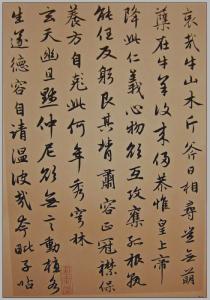 哀哉牛山木斤斧日相尋豈無萌
蘖在牛羊復來侵恭惟皇上帝
降此仁義心物欲互攻奪孤根孰
能任反躬艮其背肅容正冠襟保
養方自此何年秀穹林
玄天幽且默仲尼欲無言動植各
生遂德容自清温彼哉夸毗子呫